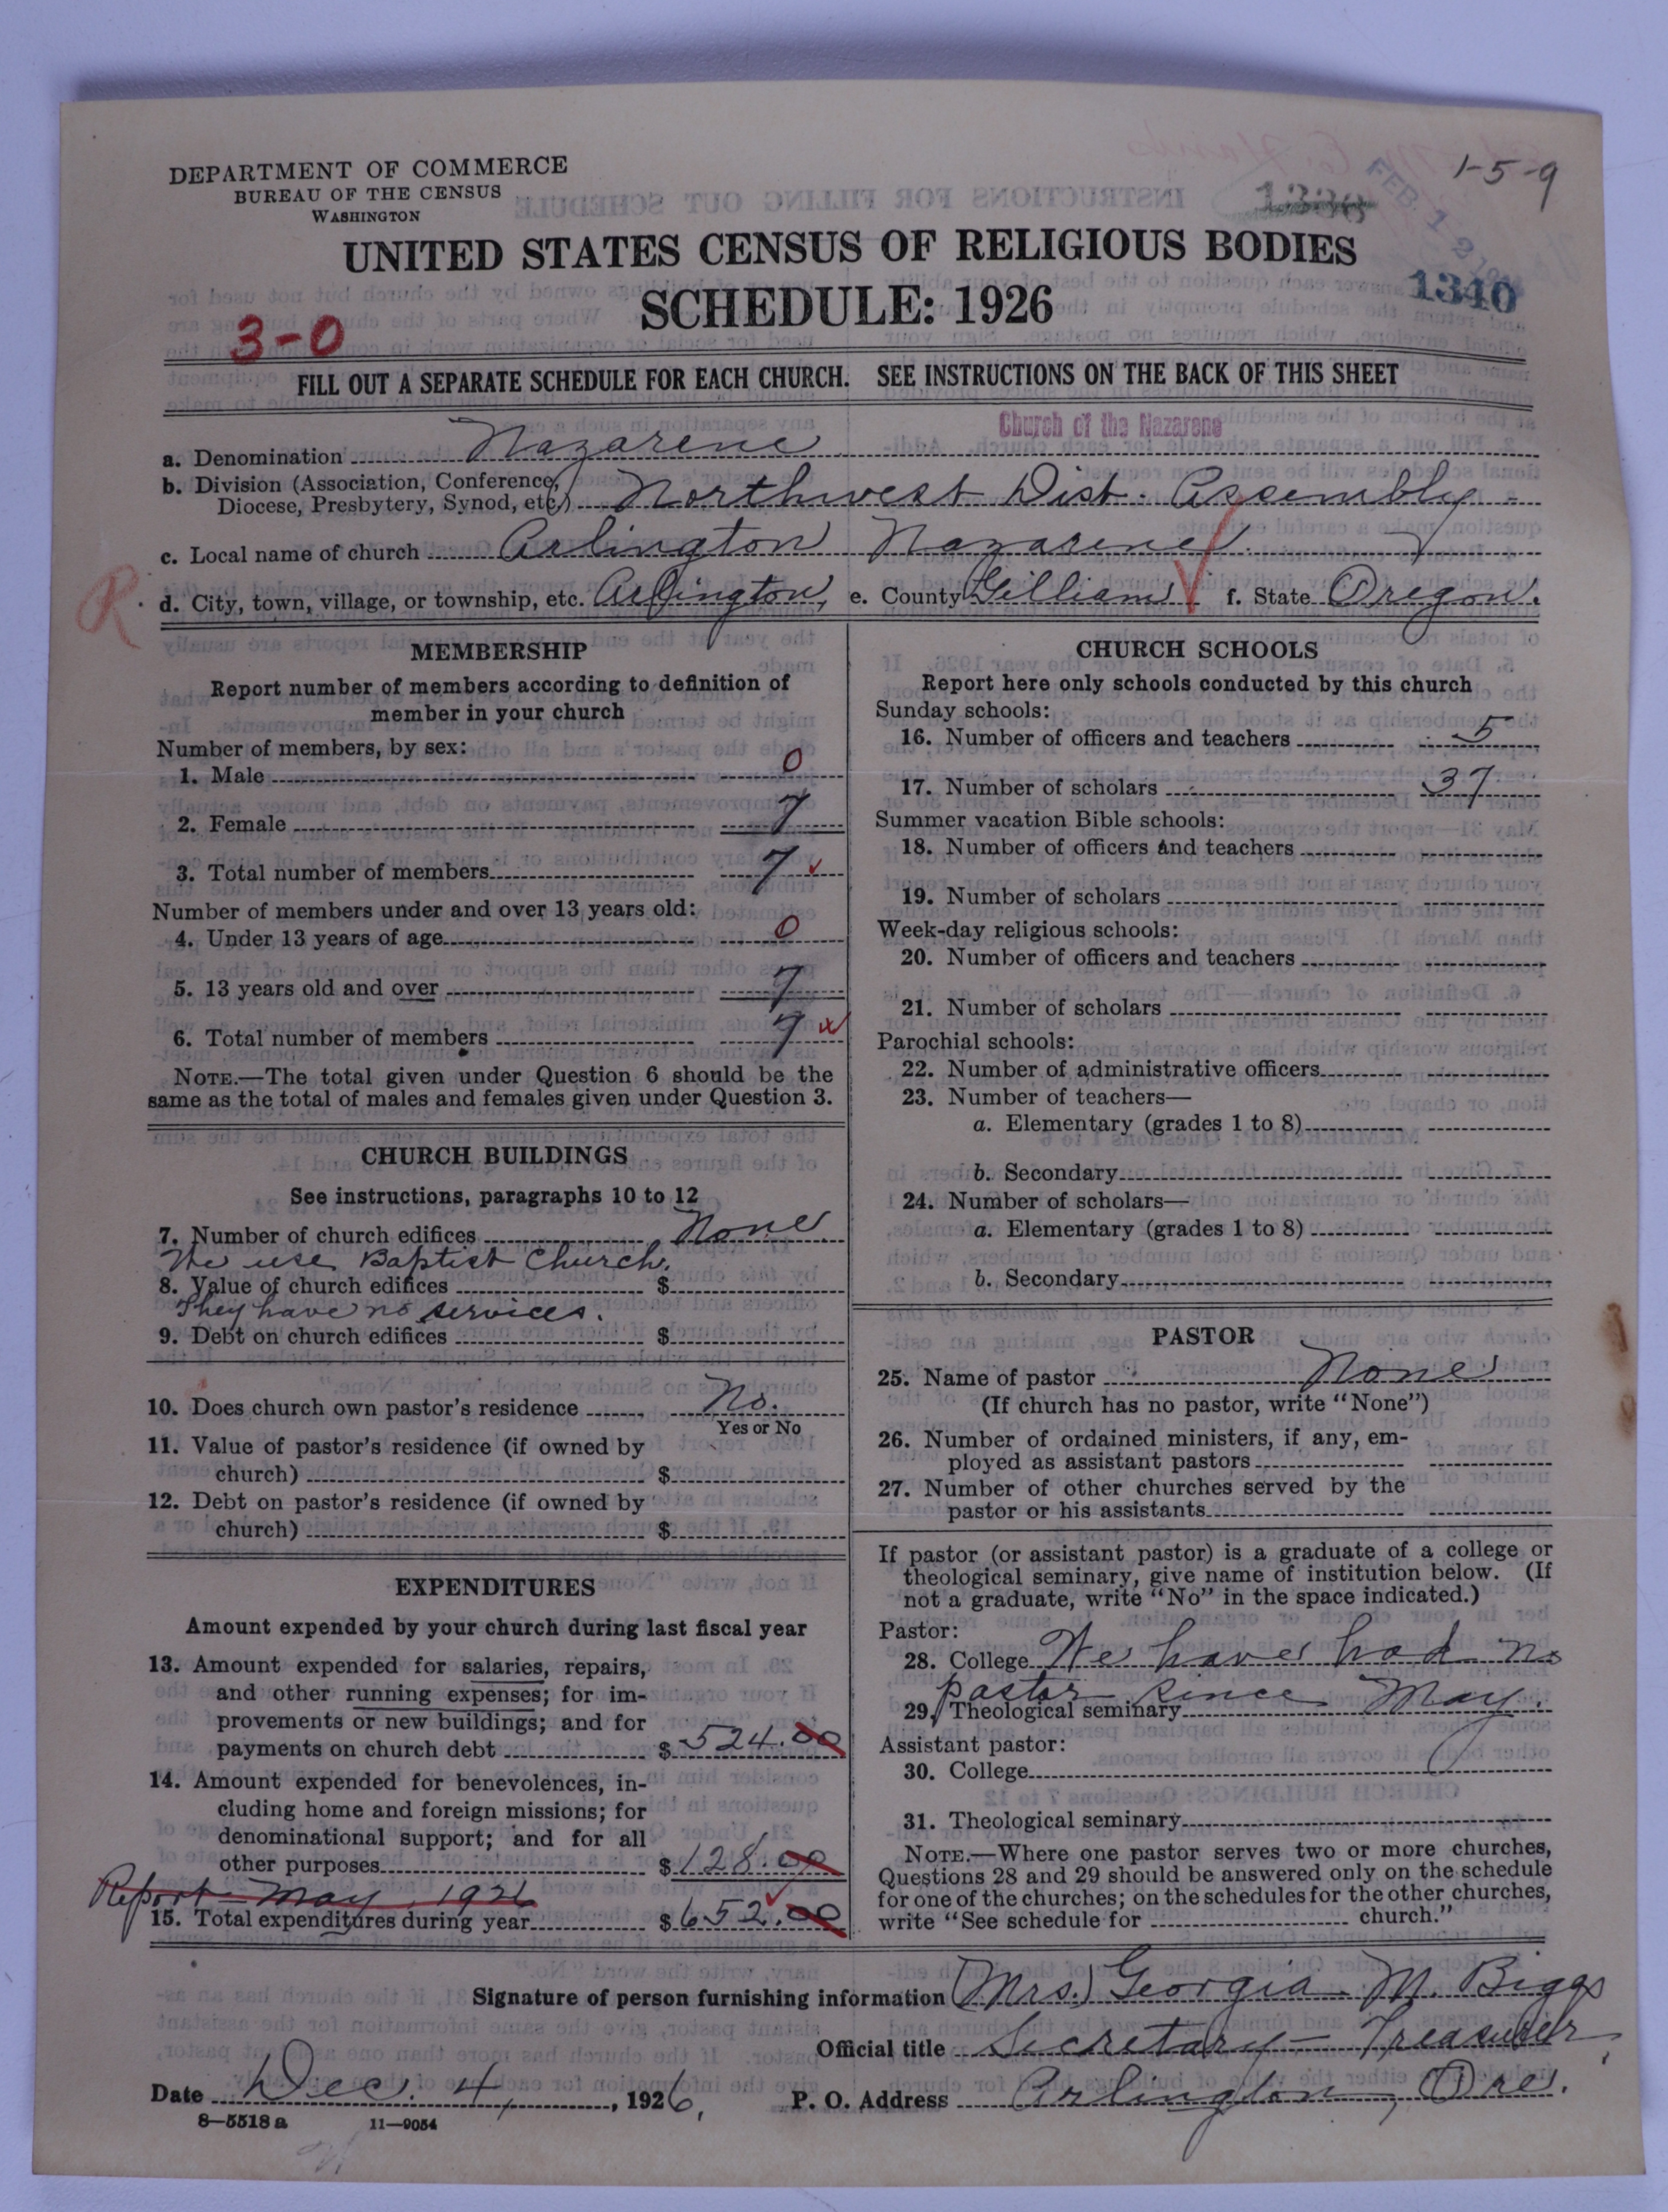 DEPARTMENT OF COMMERCE
BUREAU OF THE CENSUS
WASHINGTON
1-5-9
1338
FEB 1 2
UNITED STATES CENSUS OF RELIGIOUS BODIES
SCHEDULE: 1926
1340
3-0
FILL OUT A SEPARATE SCHEDULE FOR EACH CHURCH. SEE INSTRUCTIONS ON THE BACK OF THIS SHEET
Church of the Nazarene
a. Denomination Nazarene
b. Division (Association, Conference,
Diocese, Presbytery, Synod, etc.) Northwest Dist. Assembly
c. Local name of church Arlington Nazarene
R
d. City, town, village, or township, etc. Arlington, e. County Gilliam f. State Oregon.
MEMBERSHIP
Report number of members according to definition of
member in your church
Number of members, by sex:
1. Male 0
2. Female 7
3. Total number of members 7
Number of members under and over 13 years old:
4. Under 13 years of age 0
5. 13 years old and over 7
6. Total number of members 7
NOTE.—The total given under Question 6 should be the
same as the total of males and females given under Question 3.
CHURCH BUILDINGS
See instructions, paragraphs 10 to 12
7. Number of church edifices None
We use Baptist Church.
8. Value of church edifices $
They have no services.
9. Debt on church edifices $
10. Does church own pastor's residence No.
Yes or No
11. Value of pastor's residence (if owned by
church) $
12. Debt on pastor's residence (if owned by
church) $
EXPENDITURES
Amount expended by your church during last fiscal year
13. Amount expended for salaries, repairs,
and other running expenses; for im-
provements or new buildings; and for
payments on church debt $ 524.00
14. Amount expended for benevolences, in-
cluding home and foreign missions; for
denominational support; and for all
other purposes $ 128.00
Report May, 1926
15. Total expenditures during year $ 652.00
CHURCH SCHOOLS
Report here only schools conducted by this church
Sunday schools:
16. Number of officers and teachers 5
17. Number of scholars 37
Summer vacation Bible schools:
18. Number of officers and teachers
19. Number of scholars
Week-day religious schools:
20. Number of officers and teachers
21. Number of scholars
Parochial schools:
22. Number of administrative officers
23. Number of teachers—
a. Elementary (grades 1 to 8)
b. Secondary
24. Number of scholars—
a. Elementary (grades 1 to 8)
b. Secondary
PASTOR
25. Name of pastor None
(If church has no pastor, write "None")
26. Number of ordained ministers, if any, em-
ployed as assistant pastors
27. Number of other churches served by the
pastor or his assistants
If pastor (or assistant pastor) is a graduate of a college or
theological seminary, give name of institution below. (If
not a graduate, write "No" in the space indicated.)
Pastor:
28. College We have had no
pastor since May.
29. Theological seminary
Assistant pastor:
30. College
31. Theological seminary
NOTE.—Where one pastor serves two or more churches,
Questions 28 and 29 should be answered only on the schedule
for one of the churches; on the schedules for the other churches,
write "See schedule for church."
Signature of person furnishing information (Mrs.) Georgia M. Biggs
Official title Secretary - Treasurer
Date Dec. 4, 1926, P. O. Address Arlington, Ore.
8—5518 a 11—9054